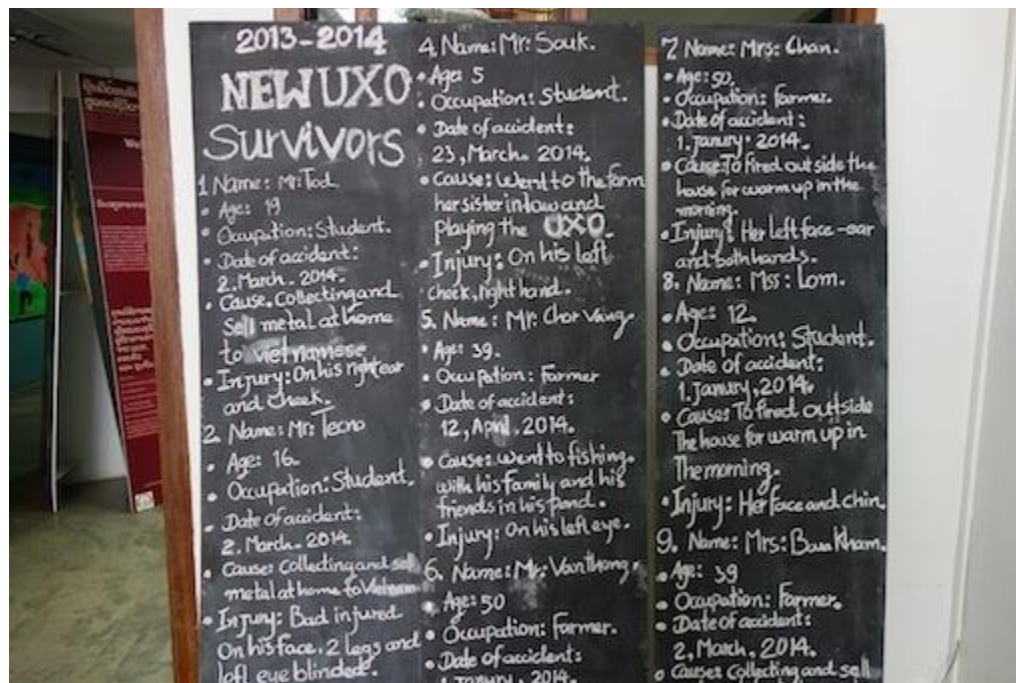 2013-2014
NEW UXO
Survivors
1 Name: Mr: Tod.
• Age: 19
• Occupation: Student.
• Date of accident:
2. March. 2014.
• Cause. Collecting and
sell metal at home
to vietnamese
• Injury: On his right ear
and cheek.
2. Name: Mr: Tecno
• Age: 16.
• Occupation: Student.
• Date of accident:
2. March. 2014.
• Cause: Collecting and sell
metal at home to Vietnam
• Injury: Bad injured
On his face. 2 legs and
left eye blinded.
4. Name: Mr: Souk.
• Age: 5
• Occupation: Student.
• Date of accident:
23, March. 2014.
• Cause: Went to the farm
her sister in low and
Playing the UXO.
• Injury: On his left
cheek, right hand.
5. Name: Mr. Chor Vang
• Age: 39.
• Occupation: Farmer
• Date of accident:
12, April. 2014.
• Cause: went to fishing.
with his family and his
friends in his pond.
• Injury: On his left eye.
6. Name: Mr: Van Thong.
• Age: 50
• Occupation: Farmer.
• Date of accident:
1. January. 2014.
7 Name: Mrs: Chan.
• Age: 50.
• Occupation: Farmer.
• Date of accident:
1. Janury. 2014.
• Cause: To fired out side the
house for warm up in the
morning.
• Injury: Her left face - ear
and both hands.
8. Name: Mss: Lom.
• Age: 12.
• Occupation: Student.
• Date of accident:
1. Janury, 2014.
• Cause: To fired outside
The house for warm up in
The morning.
• Injury: Her face and chin.
9. Name: Mrs: Boua Kham.
• Age: 39
• Occupation: Farmer.
• Date of accident:
2, March, 2014.
• Cause: Collecting and sell